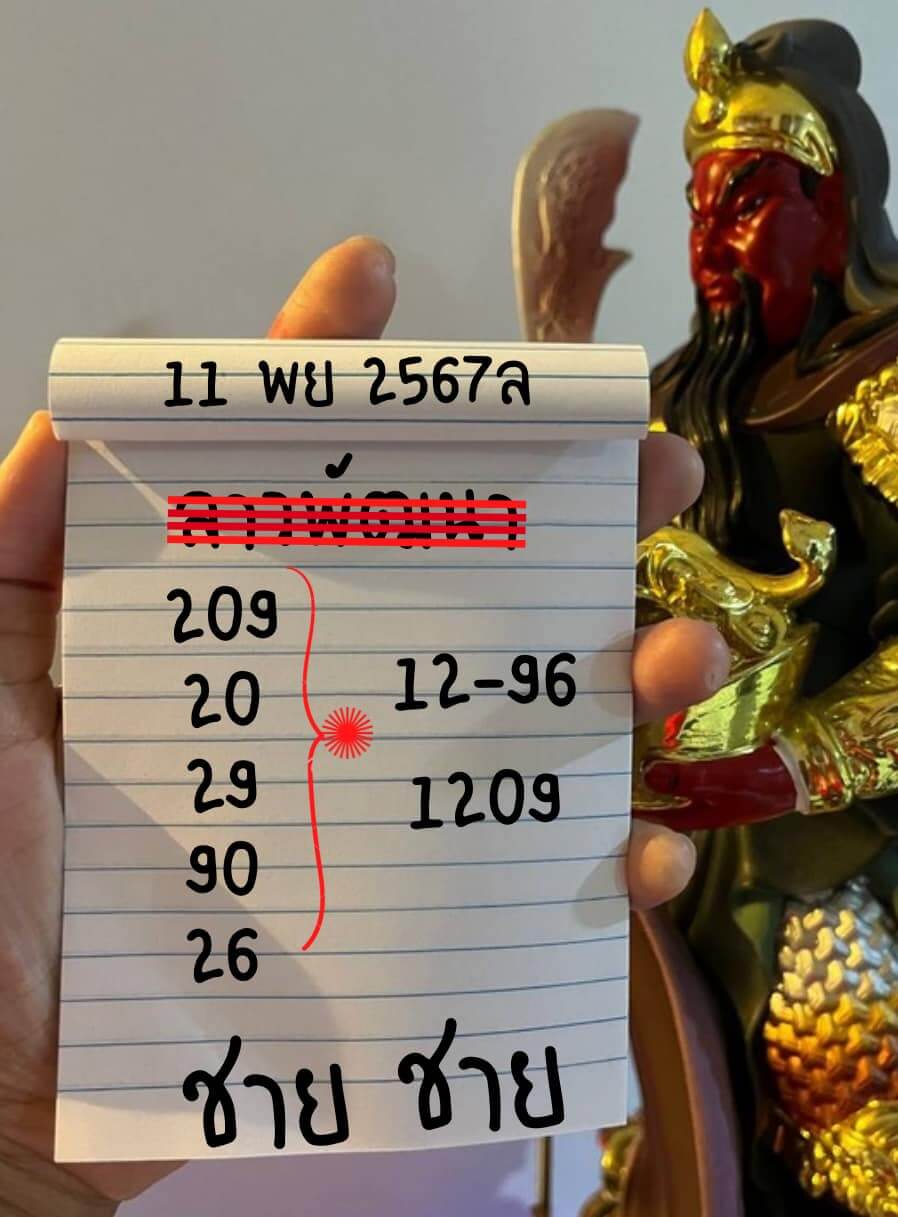 11 พย 2567ล
ลาวพัฒนา
209
20
29
90
26
12-96
1209
ชาย ชาย